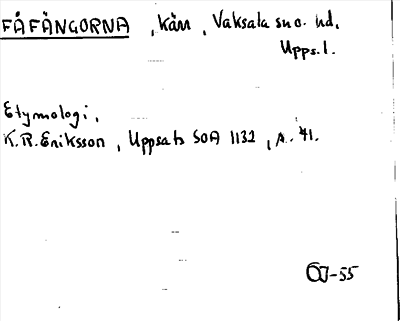 FÅFÄNGORNA, kärr, Vaksala sn o. hd.
Upps. l.
Etymologi.
K.R. Eriksson, Uppsats SOA 1132, A. 41.
OJ-55